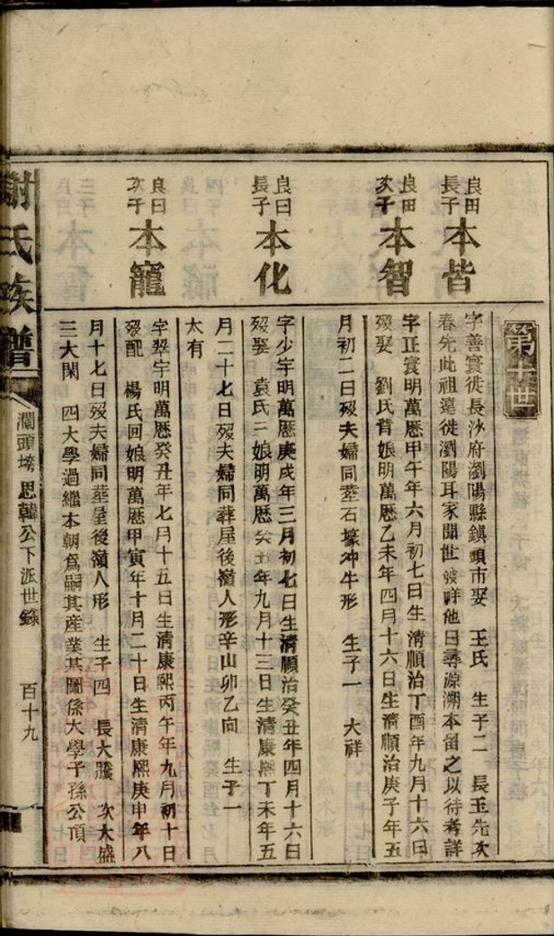 第十世
良田長子 本皆
字善寰徙長沙府瀏陽縣鎮頭市娶 王氏 生子二 長玉先次
春先此祖遠徙瀏陽耳家聞世 咩他日尋源溯本留之以待考詳
良田次子 本智
字正寰明萬歷甲午年六月初七日生 清順治丁酉年九月十六日
歿娶 劉氏 娘明萬歷乙未年四月十六日生清順治庚子年五
月初二日歿夫婦同塟石壕冲牛形 生子一 大祥
良曰長子 本化
字少宇明萬歷庚戌年三月初七日生清順治癸丑年四月十六日
歿娶 袁氏二娘明萬歷癸丑年九月十三日生清康熙丁未年五
月二十七日歿夫婦同葬屋後嶺人形辛山卯乙向 生子一
太有
良曰次子 本寵
字翠宇明萬歷癸丑年七月十五日清康熙丙午年九月初十日
歿配 楊氏回娘明萬歷甲寅年十月二十日生清康熙庚申年八
月十七日歿夫婦同塟屋後嶺人形 生子四 長大騰 次大盛
三大閑 四大學過繼本朝爲嗣其産業其圖係大學子孫公頂
謝氏族譜
瀾頭塆 思韓公下派世錄
百十九